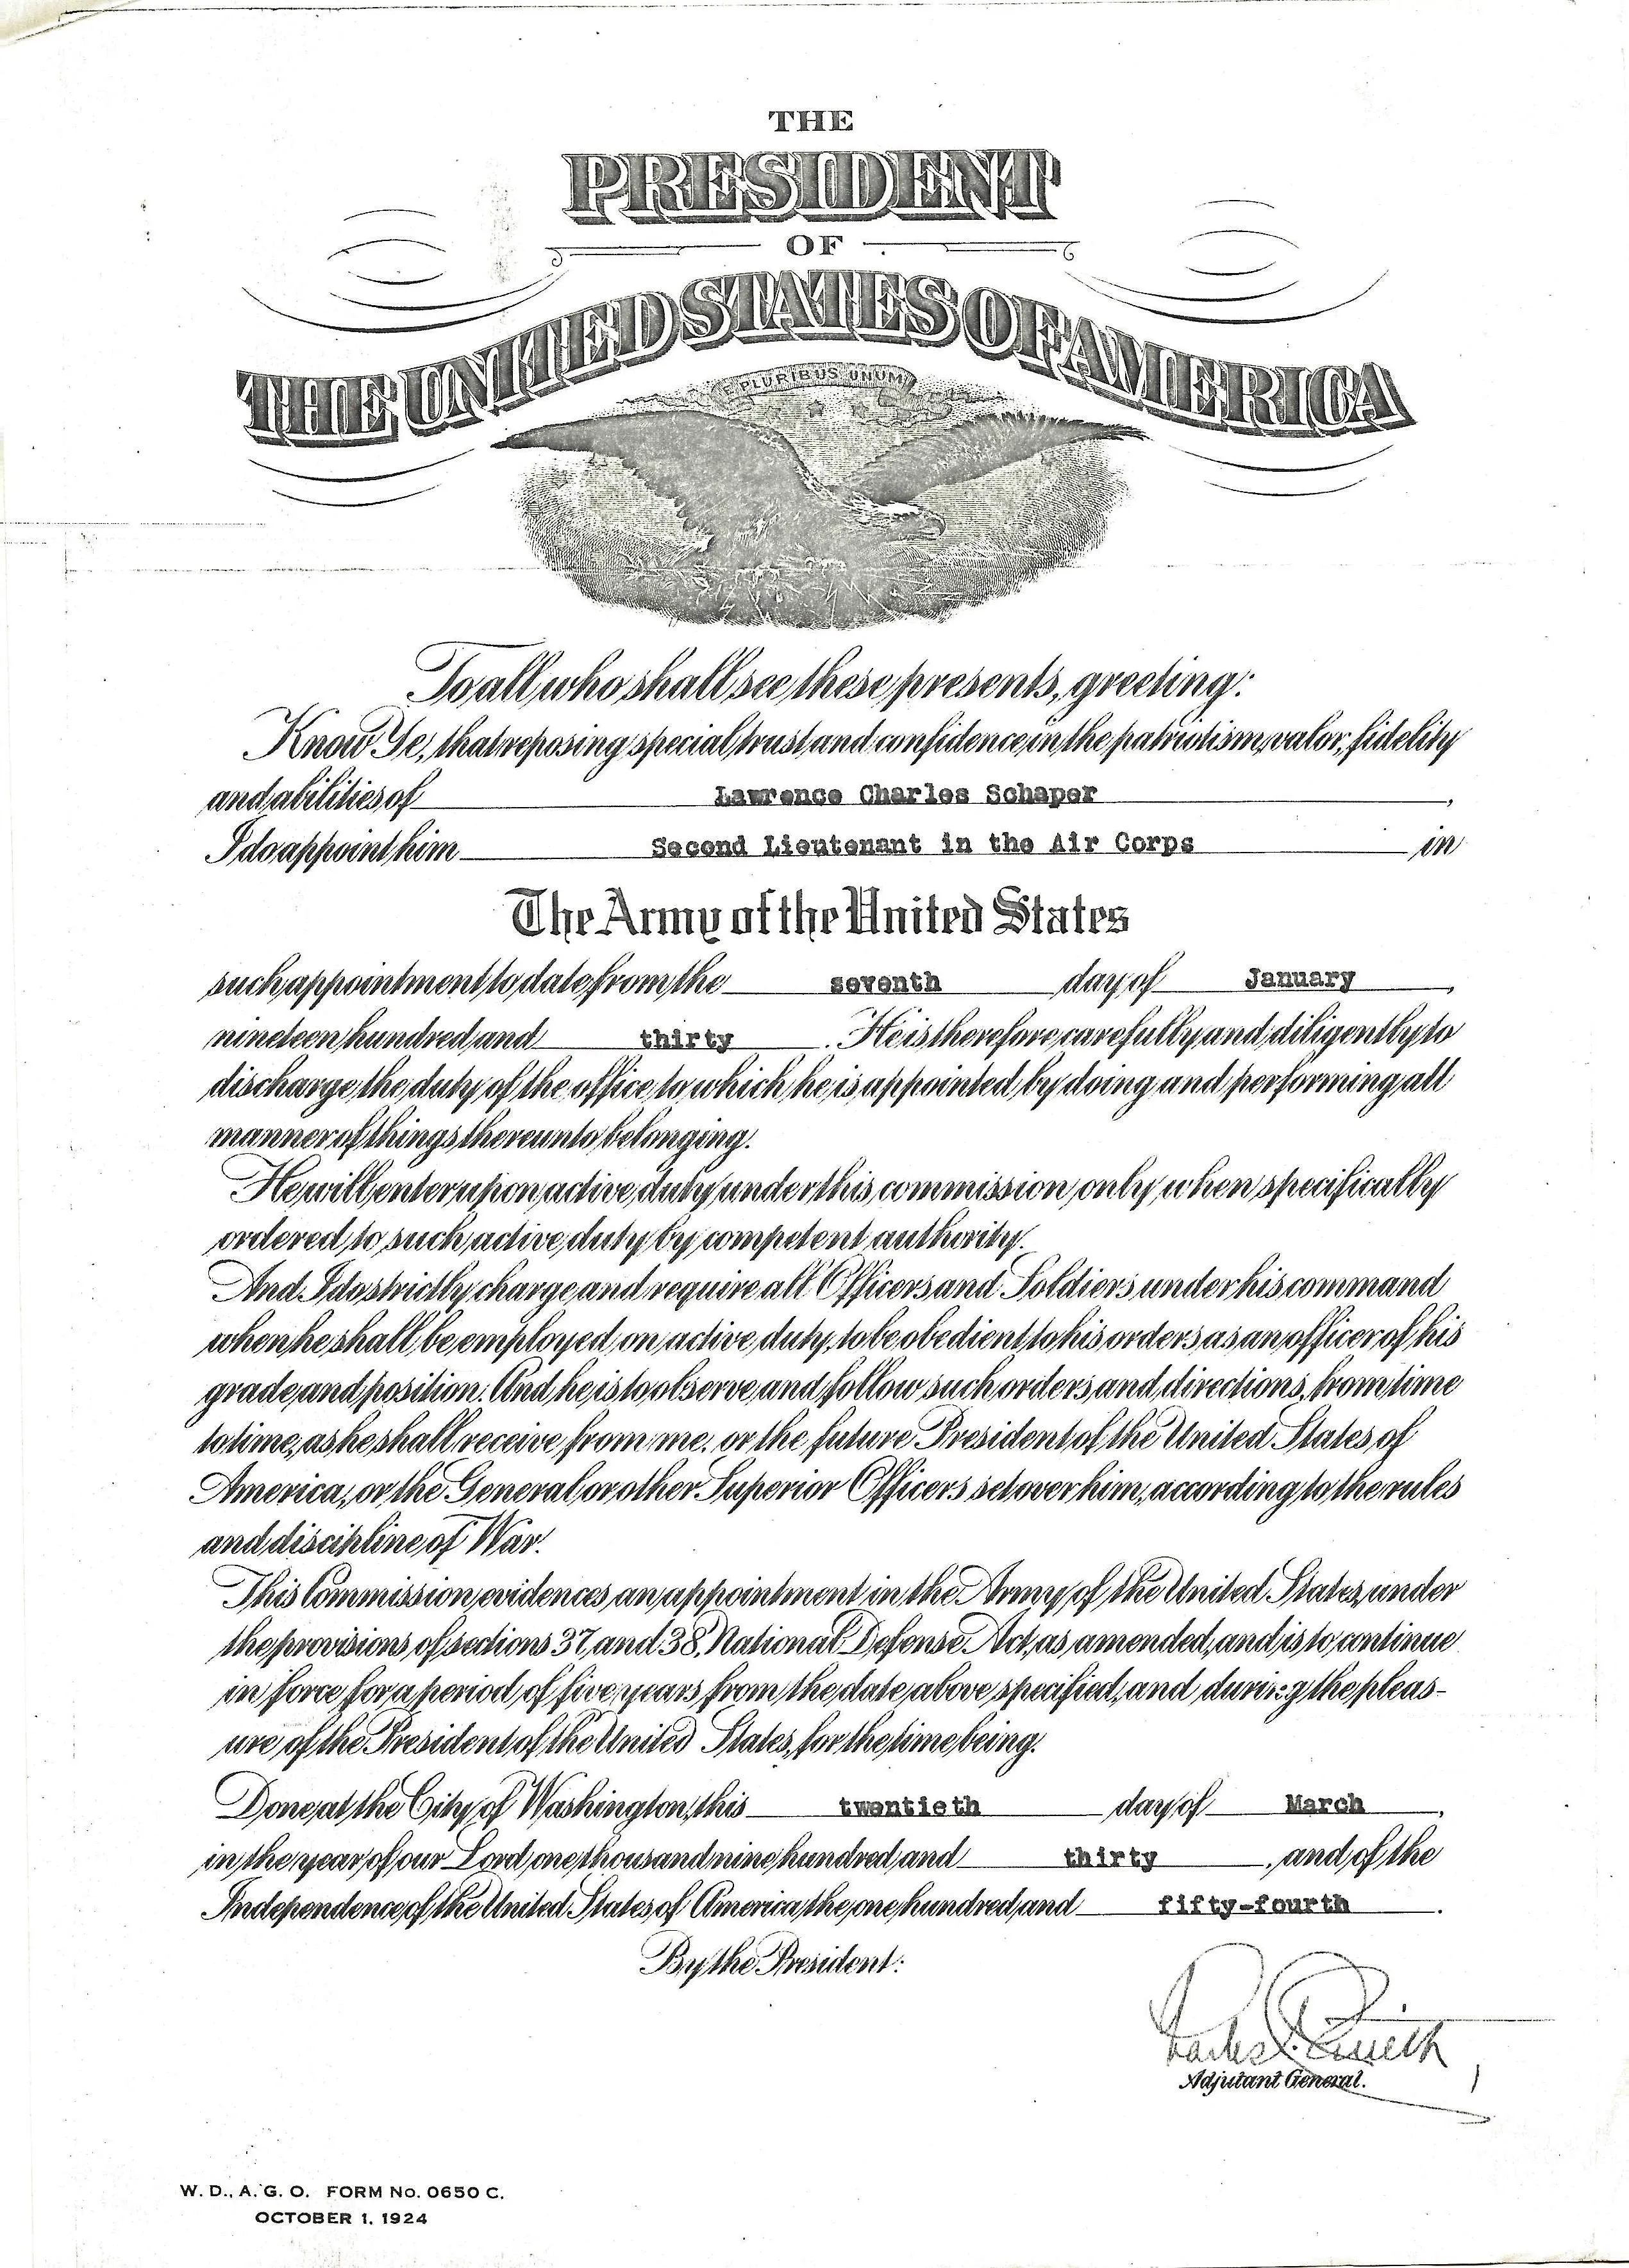 THE
PRESIDENT
OF
THE UNITED STATES OF AMERICA
E PLURIBUS UNUM
To all who shall see these presents, greeting:
Know Ye, that reposing special trust and confidence in the patriotism, valor, fidelity
and abilities of Lawrence Charles Schaper,
I do appoint him Second Lieutenant in the Air Corps in
The Army of the United States
such appointment to date from the seventh day of January,
nineteen hundred and thirty. He is therefore carefully and diligently to
discharge the duty of the office to which he is appointed by doing and performing all
manner of things thereunto belonging.
He will enter upon active duty under this commission only when specifically
ordered to such active duty by competent authority.
And I do strictly charge and require all Officers and Soldiers under his command
when he shall be employed on active duty, to be obedient to his orders as an officer of his
grade and position. And he is to observe and follow such orders and directions, from time
to time, as he shall receive from me, or the future President of the United States of
America, or the General or other Superior Officers set over him, according to the rules
and discipline of War.
This Commission evidences an appointment in the Army of the United States, under
the provisions of sections 37 and 38, National Defense Act, as amended, and is to continue
in force for a period of five years from the date above specified, and during the pleas-
ure of the President of the United States, for the time being.
Done at the City of Washington, this twentieth day of March,
in the year of our Lord one thousand nine hundred and thirty, and of the
Independence of the United States of America the one hundred and fifty-fourth.
By the President:
Adjutant General.
W. D., A. G. O. FORM No. 0650 C.
OCTOBER 1, 1924